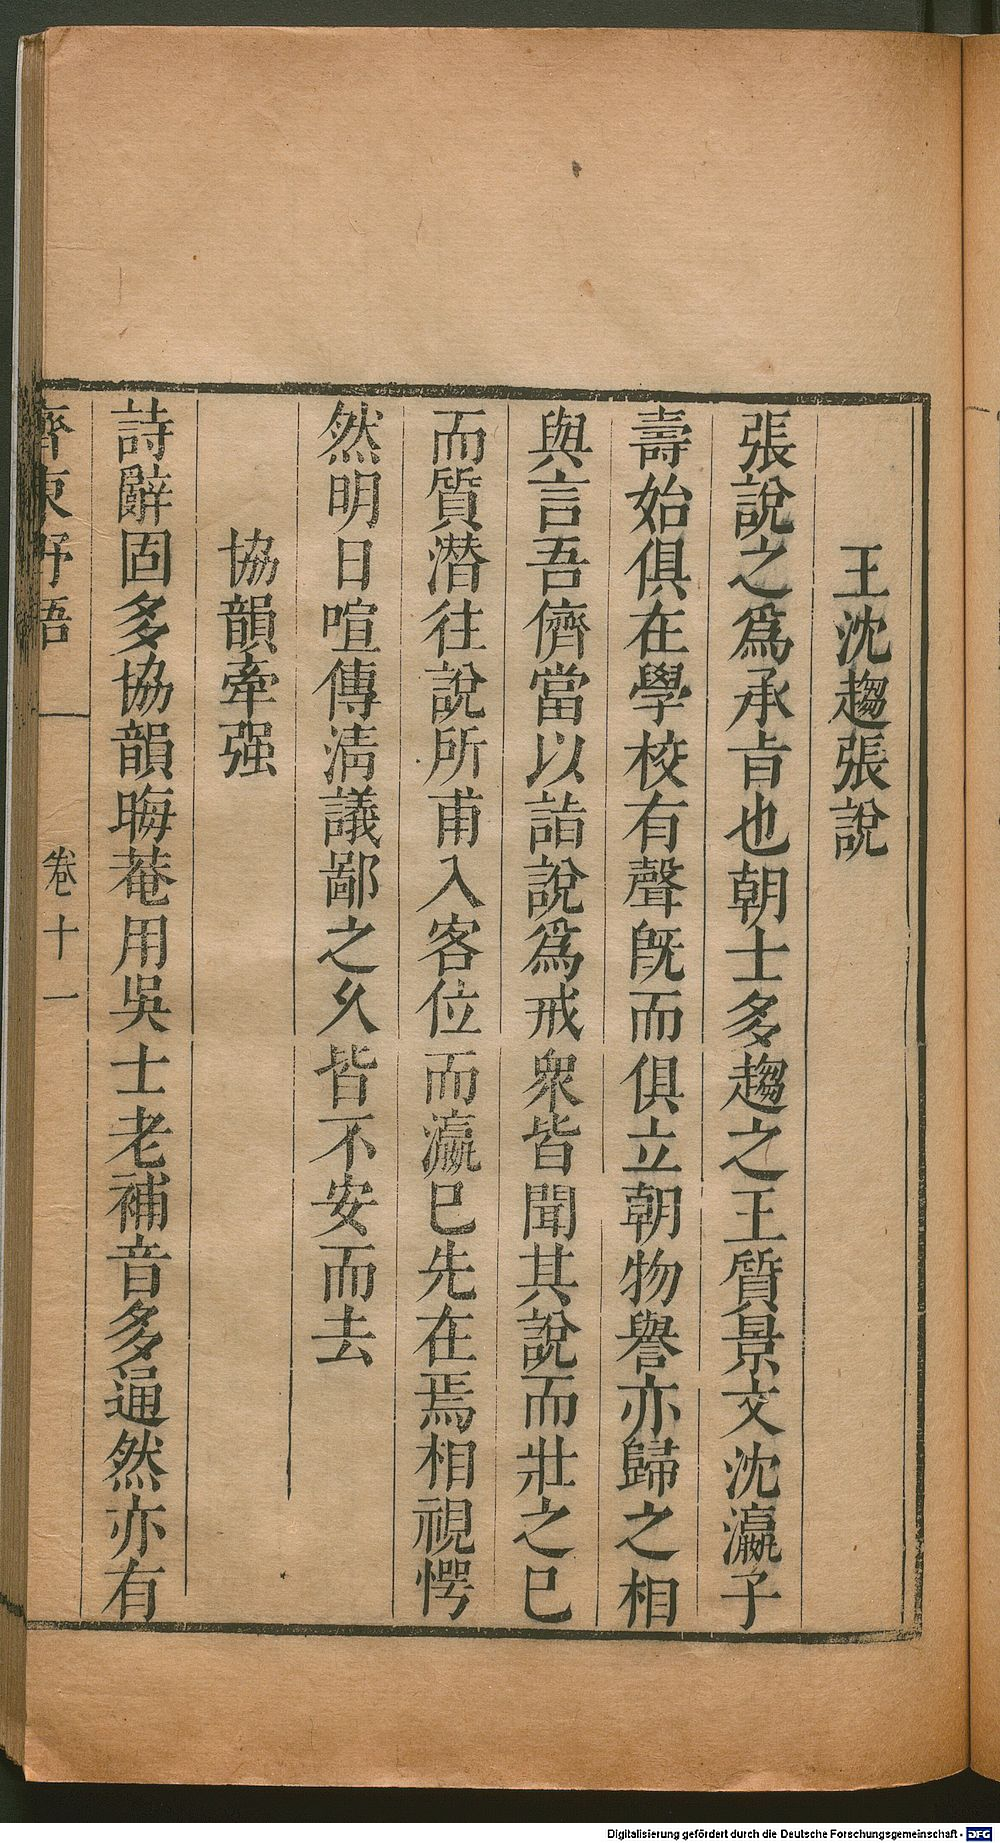 王沈趨張說
張說之爲承旨也朝士多趨之王質景文沈瀛子
壽始俱在學校有聲旣而俱立朝物譽亦歸之相
與言吾儕當以詣說爲戒衆皆聞其說而壯之已
而質潜往說所甫入客位而瀛已先在焉相視愕
然明日喧傳淸議鄙之乆皆不安而去
協韻牽强
詩辭固多協韻晦菴用吳士老補音多通然亦有
齊東野語
卷十一
Digitalisierung gefördert durch die Deutsche Forschungsgemeinschaft - DFG